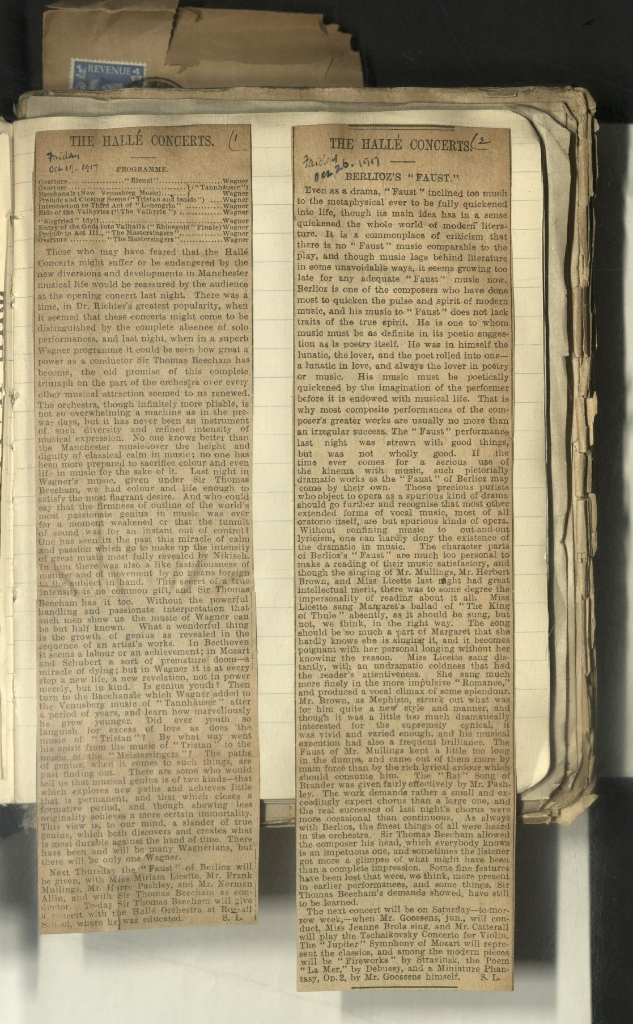 REVENUE
THE HALLÉ CONCERTS. (1
Friday
Oct 19. 1917
PROGRAMME.
Overture "Rienzi" Wagner
Overture } ("Tannhäuser") Wagner
Bacchanale (New Venusberg Music) Wagner
Prelude and Closing Scene ("Tristan and Isolde") Wagner
Introduction to Third Act of "Lohengrin" Wagner
Ride of the Valkyries ("The Valkyrie") Wagner
"Siegfried" Idyll Wagner
Entry of the Gods into Valhalla ("Rhinegold" Finale) Wagner
Prelude to Act III., "The Mastersingers" Wagner
Overture "The Mastersingers" Wagner
Those who may have feared that the Hallé
Concerts might suffer or be endangered by the
new diversions and developments in Manchester
musical life would be reassured by the audience
at the opening concert last night. There was a
time, in Dr. Richter's greatest popularity, when
it seemed that these concerts might come to be
distinguished by the complete absence of solo
performances, and last night, when in a superb
Wagner programme it could be seen how great a
power as a conductor Sir Thomas Beecham has
become, the old promise of this complete
triumph on the part of the orchestra over every
other musical attraction seemed to us renewed.
The orchestra, though infinitely more pliable, is
not so overwhelming a machine as in the pre-
war days, but it has never been an instrument
of such diversity and refined intensity of
musical expression. No one knows better than
the Manchester music-lover the height and
dignity of classical calm in music; no one has
been more prepared to sacrifice colour and even
life in music for the sake of it. Last night in
Wagner's music, given under Sir Thomas
Beecham, we had colour and life enough to
satisfy the most flagrant desire. And who could
say that the firmness of outline of the world's
most passionate genius in music was ever
for a moment weakened or that the tumult
of sound was for an instant out of control?
One has seen in the past this miracle of calm
and passion which go to make up the intensity
of great music most fully revealed by Nikisch.
In him there was also a like fastidiousness of
manner and of movement by no means foreign
to the subject in hand. This secret of a true
intensity is no common gift, and Sir Thomas
Beecham has it too. Without the powerful
handling and passionate interpretation that
such men show us the music of Wagner can
be but half known. What a wonderful thing
is the growth of genius as revealed in the
sequence of an artist's works. In Beethoven
it seems a labour or an achievement; in Mozart
and Schubert a sort of premature doom—a
miracle of dying; but in Wagner it is at every
step a new life, a new revelation, not in power
merely, but in kind. Is genius youth? Then
turn to the Bacchanale which Wagner added to
the Venusberg music of "Tannhäuser" after
a period of years, and learn how marvellously
he grew younger. Did ever youth so
languish for excess of love as does the
music of "Tristan"? By what way went
his spirit from the music of "Tristan" to the
music of the "Meistersingers"? The paths
of genius, when it comes to such things, are
past finding out. There are some who would
tell us that musical genius is of two kinds—that
which explores new paths and achieves little
that is permanent, and that which closes a
formative period, and though showing less
originality achieves a more certain immortality.
This view is, to our mind, a slander of true
genius, which both discovers and creates what
is most durable against the hand of time. There
have been and will be many Wagnerians, but
there will be only one Wagner.
Next Thursday the "Faust" of Berlioz will
be given, with Miss Miriam Licette, Mr. Frank
Mullings, Mr. Harry Pashley, and Mr. Norman
Allin, and with Sir Thomas Beecham as con-
ductor. To-day Sir Thomas Beecham will give
a concert with the Hallé Orchestra at Rossall
School, where he was educated. S. L.
THE HALLÉ CONCERTS. (2
Friday
Oct 26. 1917
BERLIOZ'S "FAUST."
Even as a drama, "Faust" inclined too much
to the metaphysical ever to be fully quickened
into life, though its main idea has in a sense
quickened the whole world of modern litera-
ture. It is a commonplace of criticism that
there is no "Faust" music comparable to the
play, and though music lags behind literature
in some unavoidable ways, it seems growing too
late for any adequate "Faust" music now.
Berlioz is one of the composers who have done
most to quicken the pulse and spirit of modern
music, and his music to "Faust" does not lack
traits of the true spirit. He is one to whom
music must be as definite in its poetic sugges-
tion as is poetry itself. He was in himself the
lunatic, the lover, and the poet rolled into one—
a lunatic in love, and always the lover in poetry
or music. His music must be poetically
quickened by the imagination of the performer
before it is endowed with musical life. That is
why most composite performances of the com-
poser's greater works are usually no more than
an irregular success. The "Faust" performance
last night was strewn with good things,
but was not wholly good. If the
time ever comes for a serious use of
the kinema with music, such pictorially
dramatic works as the "Faust" of Berlioz may
come by their own. Those precious purists
who object to opera as a spurious kind of drama
should go further and recognise that most other
extended forms of vocal music, most of all
oratorio itself, are but spurious kinds of opera.
Without confining music to out-and-out
lyricism, one can hardly deny the existence of
the dramatic in music. The character parts
of Berlioz's "Faust" are much too personal to
make a reading of their music satisfactory, and
though the singing of Mr. Mullings, Mr. Herbert
Brown, and Miss Licette last night had great
intellectual merit, there was to some degree the
impersonality of reading about it all. Miss
Licette sang Margaret's ballad of "The King
of Thule" absently, as it should be sung, but
not, we think, in the right way. The song
should be so much a part of Margaret that she
hardly knows she is singing it, and it becomes
poignant with her personal longing without her
knowing the reason. Miss Licette sang dis-
tantly, with an undramatic coldness that had
the reader's attentiveness. She sang much
more finely in the more impulsive "Romance,"
and produced a vocal climax of some splendour.
Mr. Brown, as Mephisto, struck out what was
for him quite a new style and manner, and
though it was a little too much dramatically
interested for the supremely cynical, it
was vivid and varied enough, and his musical
execution had also a frequent brilliance. The
Faust of Mr. Mullings kept a little too long
in the dumps, and came out of them more by
main force than by the rich lyrical ardour which
should consume him. The "Rat" Song of
Brander was given fairly effectively by Mr. Pash-
ley. The work demands rather a small and ex-
ceedingly expert chorus than a large one, and
the real successes of last night's chorus were
more occasional than continuous. As always
with Berlioz, the finest things of all were heard
in the orchestra. Sir Thomas Beecham allowed
the composer his head, which everybody knows
is an impetuous one, and sometimes the listener
got more a glimpse of what might have been
than a complete impression. Some fine features
have been lost that were, we think, more present
in earlier performances, and some things, Sir
Thomas Beecham's demands showed, have still
to be learned.
The next concert will be on Saturday—to-mor-
row week,—when Mr. Goossens, jun., will con-
duct, Miss Jeanne Brola sing, and Mr. Catterall
will play the Tschaikovsky Concerto for Violin.
The "Jupiter" Symphony of Mozart will repre-
sent the classics, and among the modern pieces
will be "Fireworks" by Stravinsk, the Poem
"La Mer," by Debussy, and a Miniature Phan-
tasy, Op. 2, by Mr. Goossens himself. S. L.